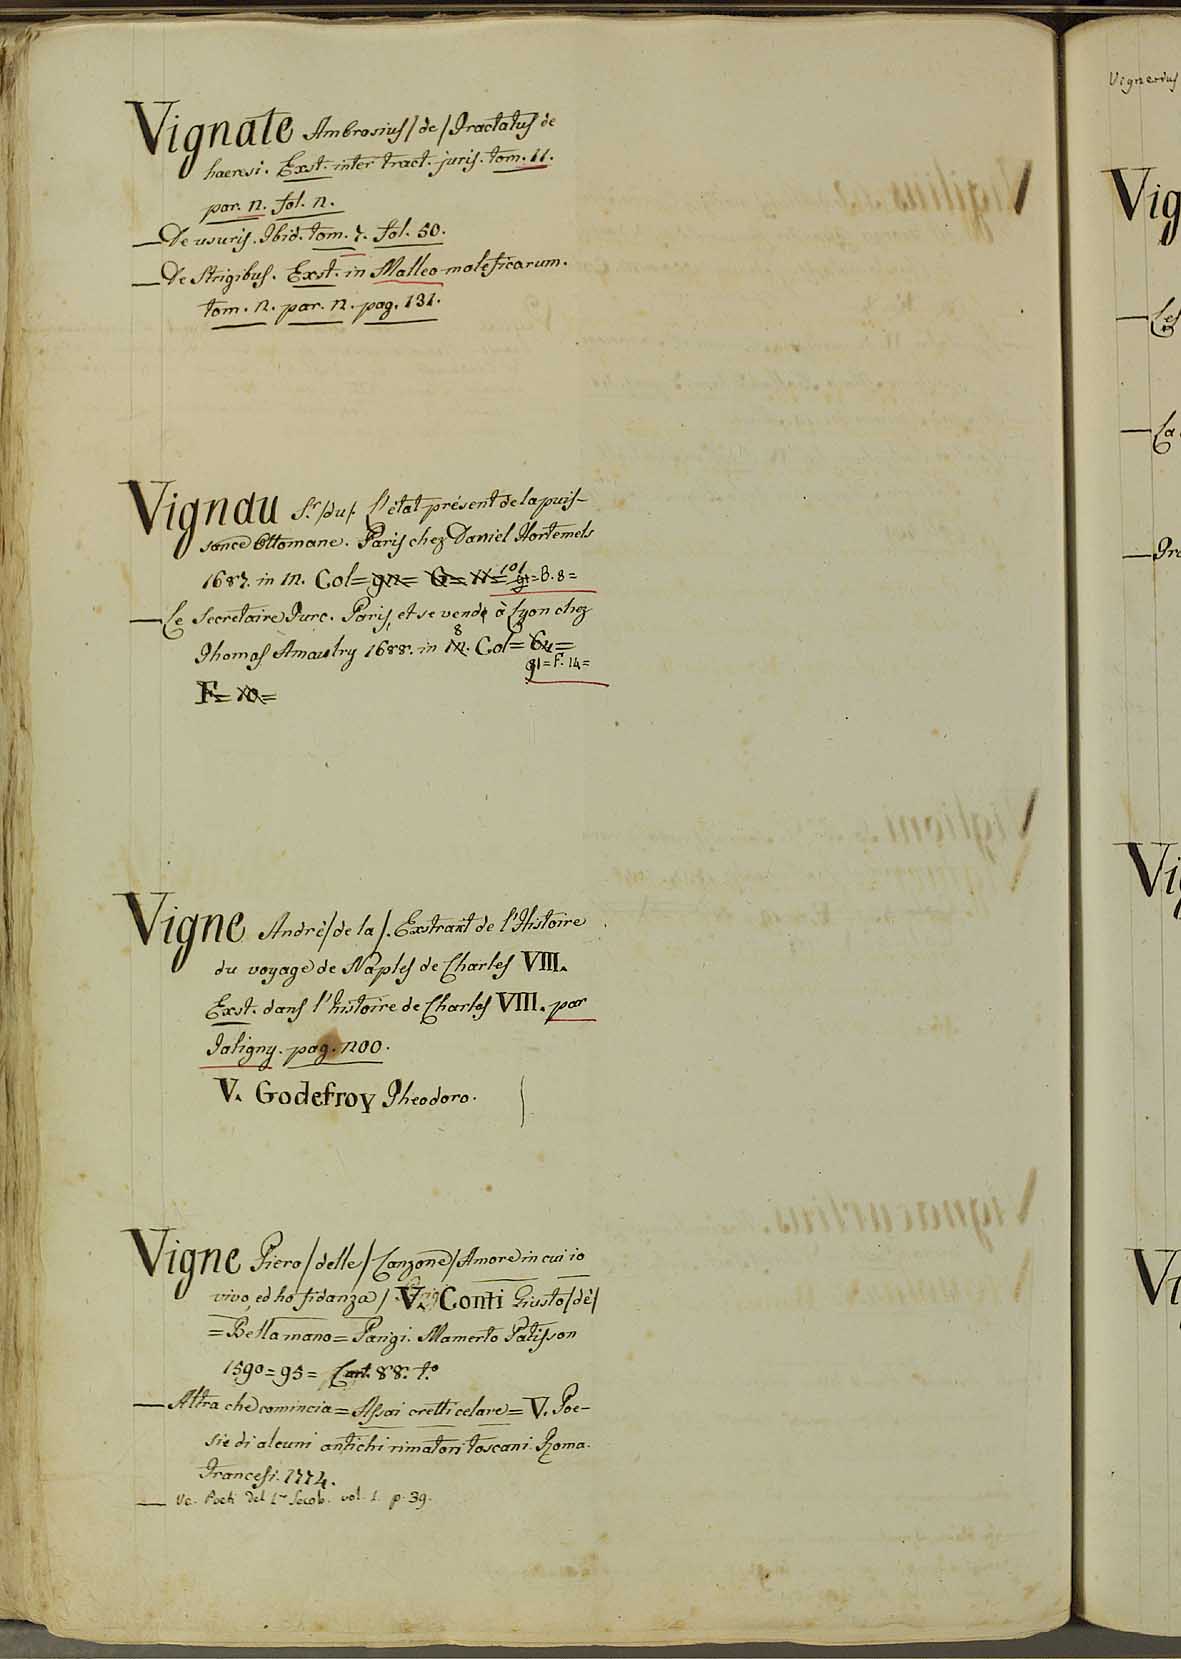 Vignate Ambrosius /de/ Tractatus de
haeresi. Exst. inter tract. juris. tom. 11.
par. 2. fol. 2.
— De usuris. Ibid. tom. 7. fol. 50.
— De Strigibus. Exst. in Malleo maleficarum.
tom. 2. par. 2. pag. 131.
Vignau Sr. /du/. L'état présent de la puis-
sance Ottomane. Paris chez Daniel Hortemels
1687. in 12. Col= 92= G= 11= 101
91=B.8=
— Le Secretaire Turc. Paris, et se vend à Lyon chez
8
Thomas Amaulry 1688. in 12. Col= 64=
91=F.14=
F= 10=
Vigne André /de la/. Extrait de l'Histoire
du voyage de Naples de Charles VIII.
Exst. dans l'histoire de Charles VIII. par
Jaligny. pag. 200.
V. Godefroy Theodoro.
Vigne Piero /delle/ Canzone /Amore in cui io
vivo, ed ho fidanza/ V. Conti Giusto /dè/
=Bella mano= Parigi. Mamerto Patisson
1590=95= Cart. 88. t.º
— Altra che comincia= Assai cretti celare= V. Poe-
sie di alcuni antichi rimatori toscani. Roma.
Francesi. 1774.
— Ve. Poeti del 1.º Secolo. vol. 1. p. 39.
Vignerius
Vig
— Les
— La
— Tra
Vig
Vi